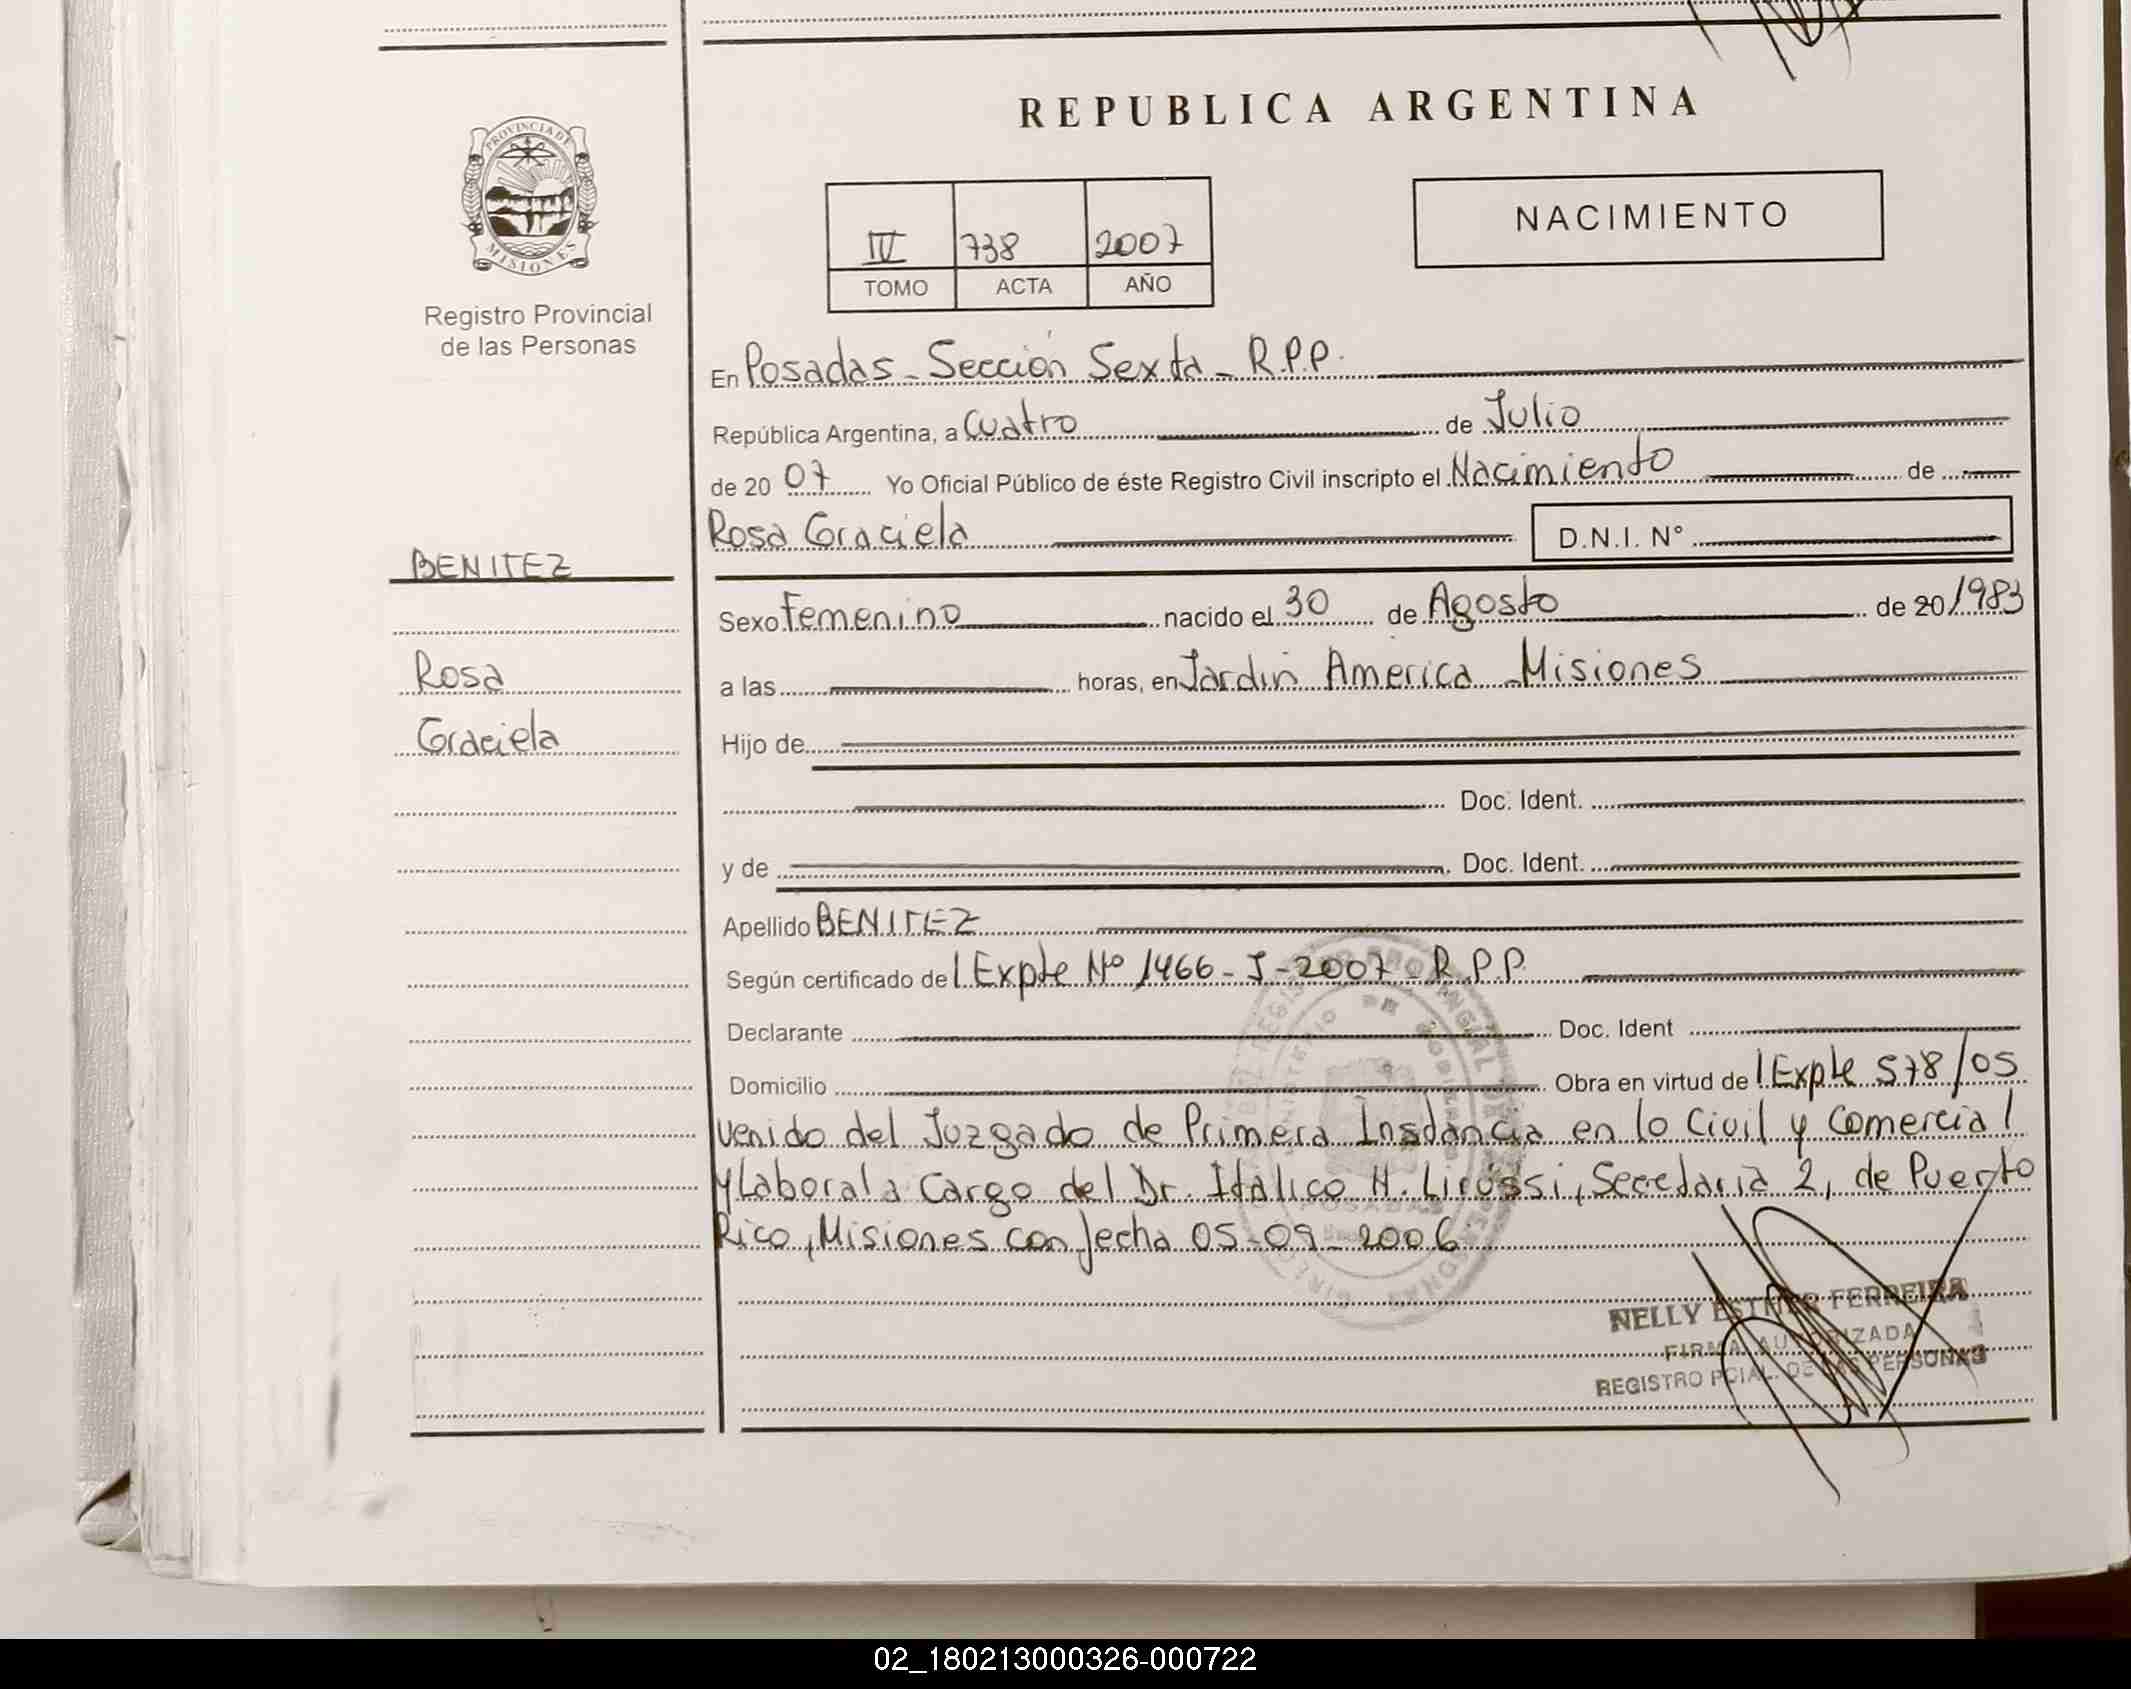 REPUBLICA ARGENTINA
PROVINCIA DE
MISIONES
Registro Provincial
de las Personas
NACIMIENTO
IV 738 2007
TOMO ACTA AÑO
En Posadas - Sección Sexta - R.P.P.
República Argentina, a Cuatro de Julio
de 20 07 Yo Oficial Público de éste Registro Civil inscripto el Nacimiento de
Rosa Graciela D.N.I. N°
BENITEZ
Rosa
Graciela
Sexo Femenino nacido el 30 de Agosto de 20/1983
a las horas, en Jardín America - Misiones
Hijo de
Doc. Ident.
y de Doc. Ident.
Apellido BENITEZ
Según certificado de Expte Nº 1466 - J - 2007 - R.P.P.
Declarante Doc. Ident
Domicilio Obra en virtud de Expte 578/05
venido del Juzgado de Primera Instancia en lo Civil y Comercial
y Laboral a Cargo del Dr. Italico H. Secretaria 2, de Puerto
Rico, Misiones con fecha 05-09-2006
NELLY ESTHER FERREIRA
FIRMA AUTORIZADA
REGISTRO PCIAL. DE LAS PERSONAS
02_180213000326-000722